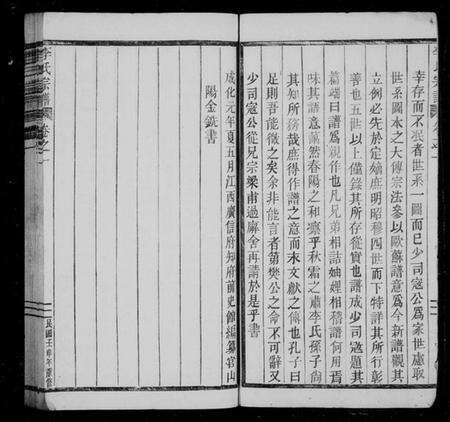 幸存而不泯者世系一圖而已少司寇公爲家世慮取
世系圖本之大傳宗法參以歐蘇譜意爲今新譜觀其
立例必先於定嫡庶明昭穆四世而下特詳其所行彰
善也五世以上僅錄其所存從實也譜成少司寇題其
篇端曰譜爲親作也凡兄弟相詬妯娌相稽譜何用焉
味其語意藹然春陽之和凛乎秋霜之肅李氏孫子尙
其知所務哉庶得作譜之意而末文獻之條也孔子曰
足則吾能徵之矣余非能言者第樊公之命不可辭又
少司寇公從兄宗梁甫過廨舍再請於是乎書
成化元年夏五月江西廣信府知府前史館編纂官山
陽金銑書
李氏宗譜 卷之一
民國壬申年重修